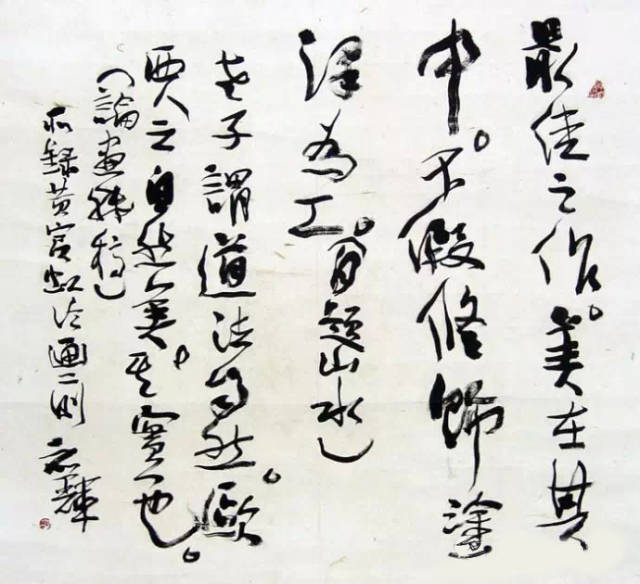 最佳之作。美在其
中。不假修飾塗
澤為工。（自題山水）
老子謂道法自然。歐
西人之自然美。其實一也。
（論畫殘稿）
錄黃賓虹論畫二則